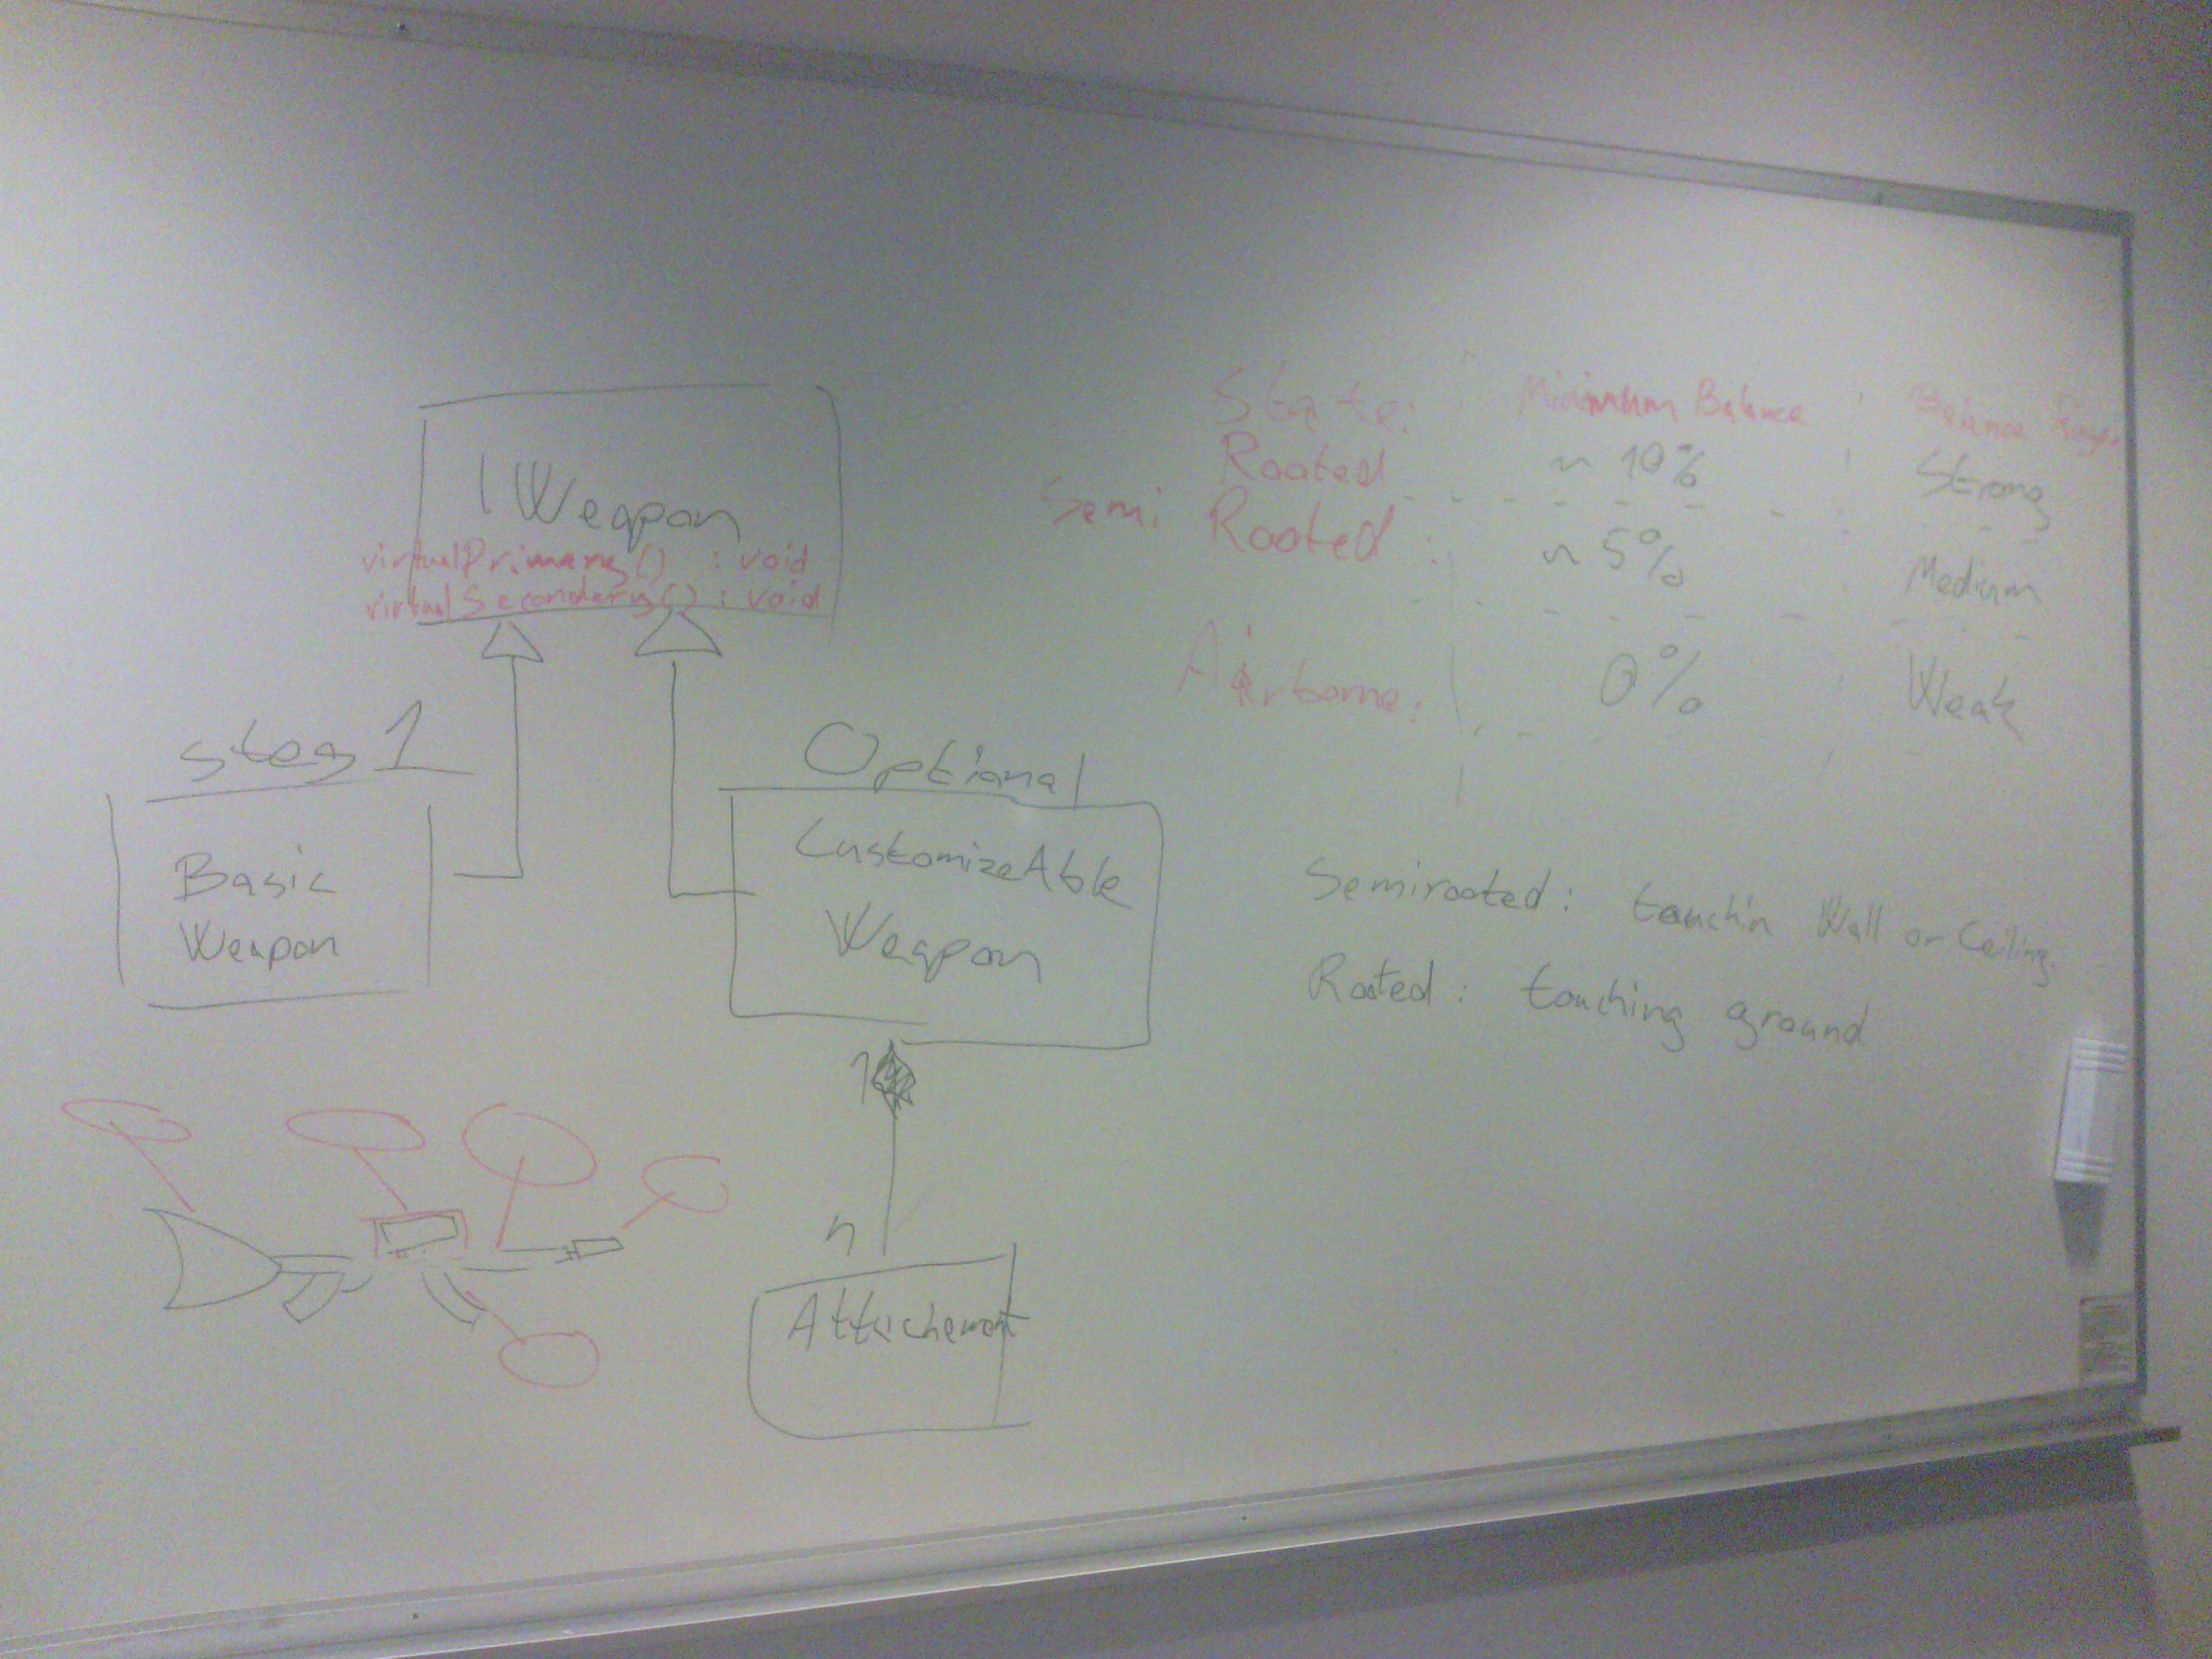 IWeapon
virtual Primary() : void
virtual Secondary() : void
steg 1
Basic
Weapon
Optional
CustomizeAble
Weapon
1
n
Attachement
State: Minimum Balance Balance
Rooted ~ 10% Strong
Semi Rooted : ~ 5% Medium
Airborne: 0% Weak
Semirooted : touchin Wall or Ceiling.
Rooted : touching ground